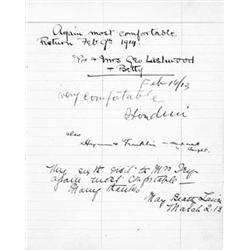 Again most comfortable
Return Feb 9th 1914.
Mrs Geo Lashwood
& Betty
Feb 16/13
very comfortable
Houdini
also
Franklin
My sixth visit to Mrs
again most comfortable
Many thanks
May Beatty
March 2. 13